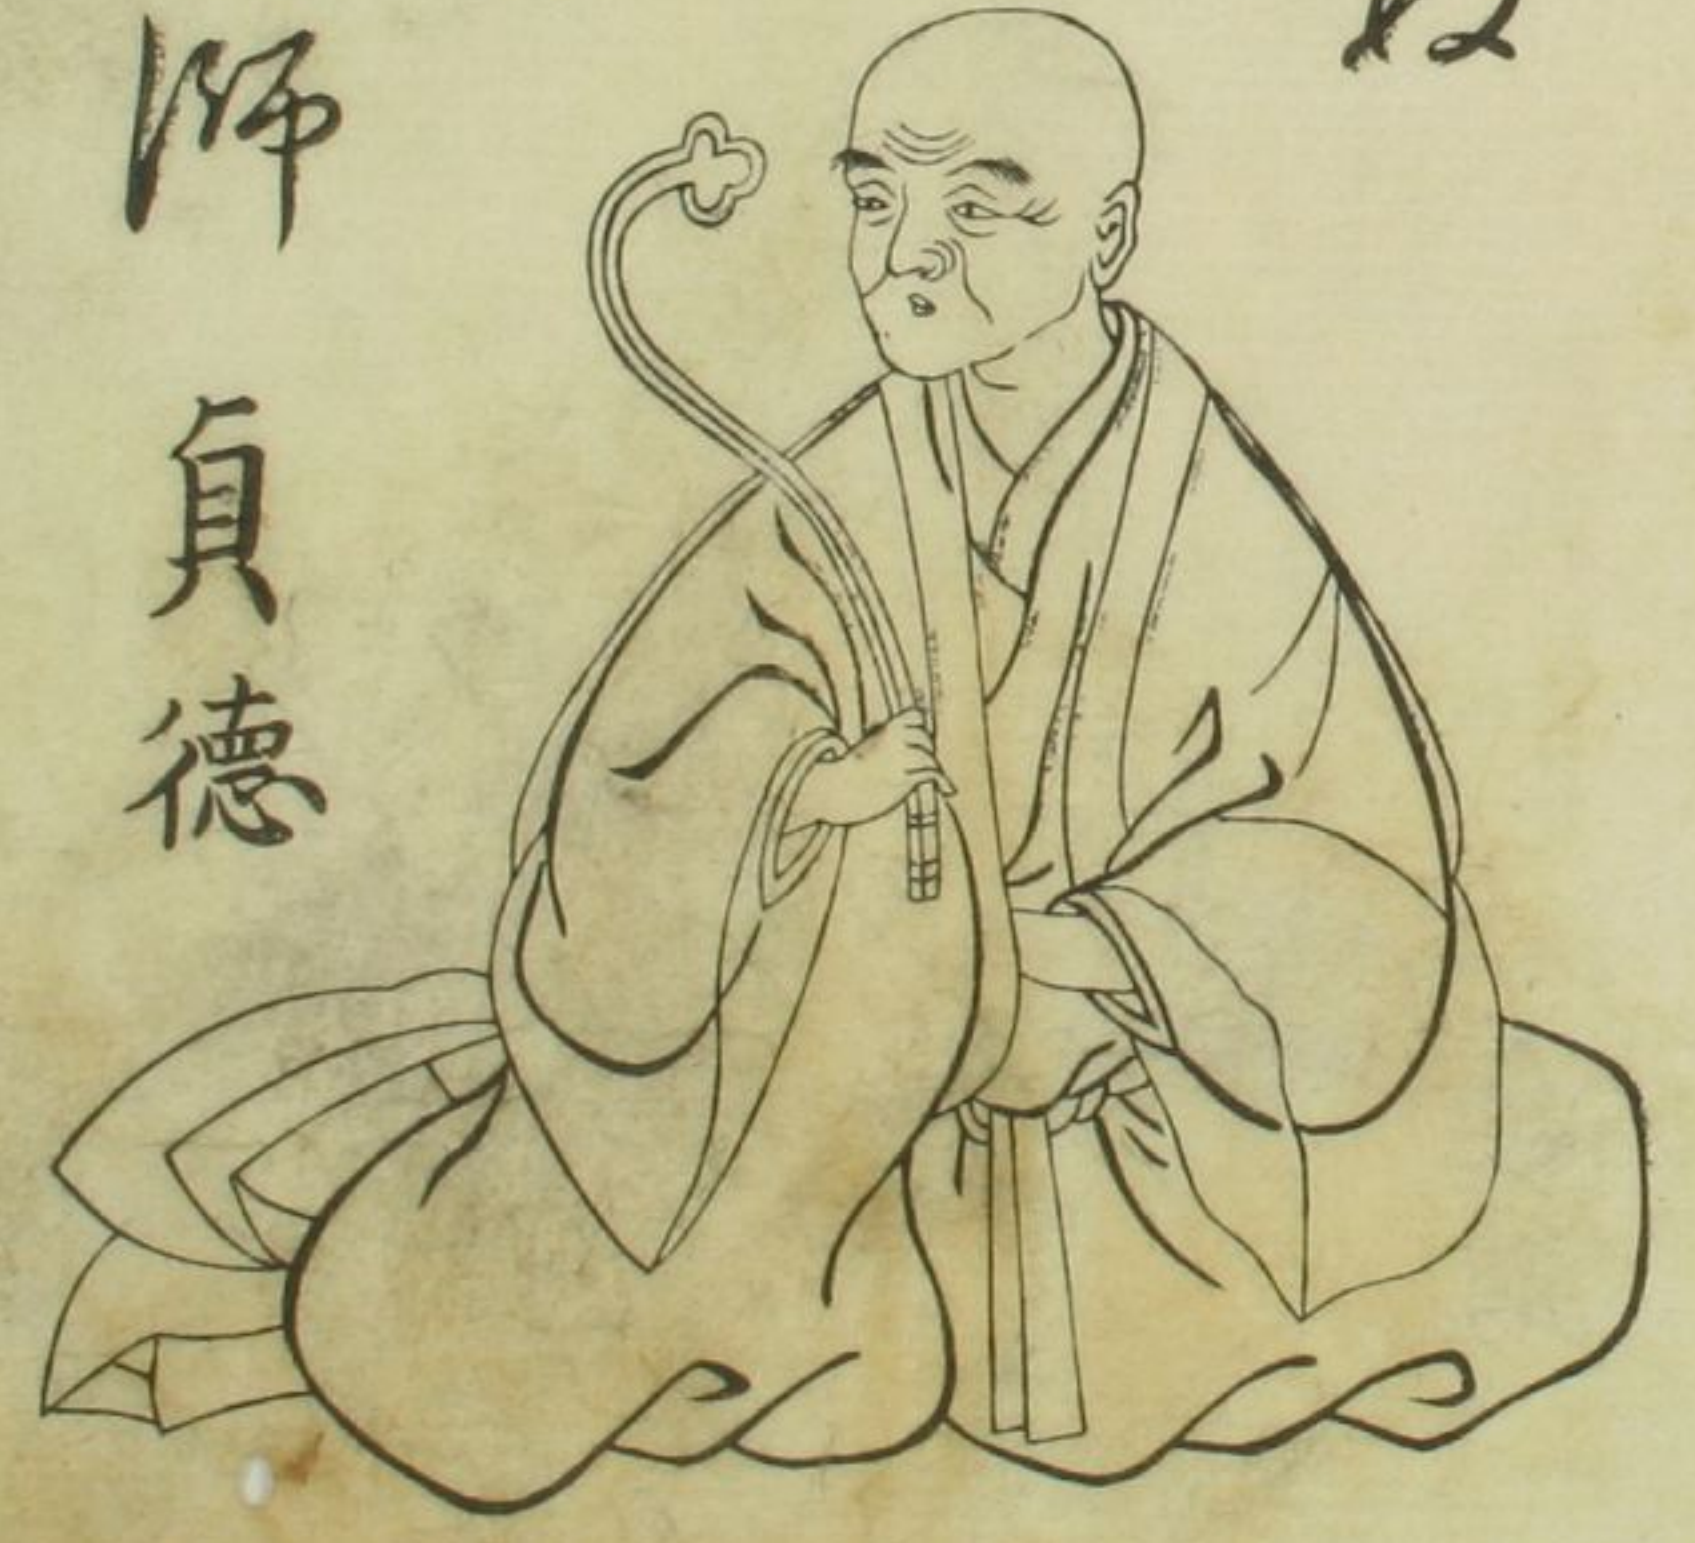 師 貞德